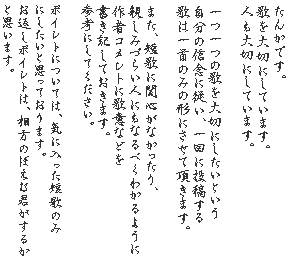 たんかです。
歌を大切にしています。
人も大切にしています。
一つ一つの歌を大切にしたいという
自分の信念に従い、一回に投稿する
歌は一首のみの形にさせて頂きます。
また、短歌に関心がなかったり、
親しみづらい人にもなるべくわかるように
作者コメントに歌意などを
書き記しておきます。
参考にしてください。
ボイレトについては、気に入った短歌のみ
にしたいと思っております。
お返しボイレトは、相方のぽえむ君がするか
と思います。